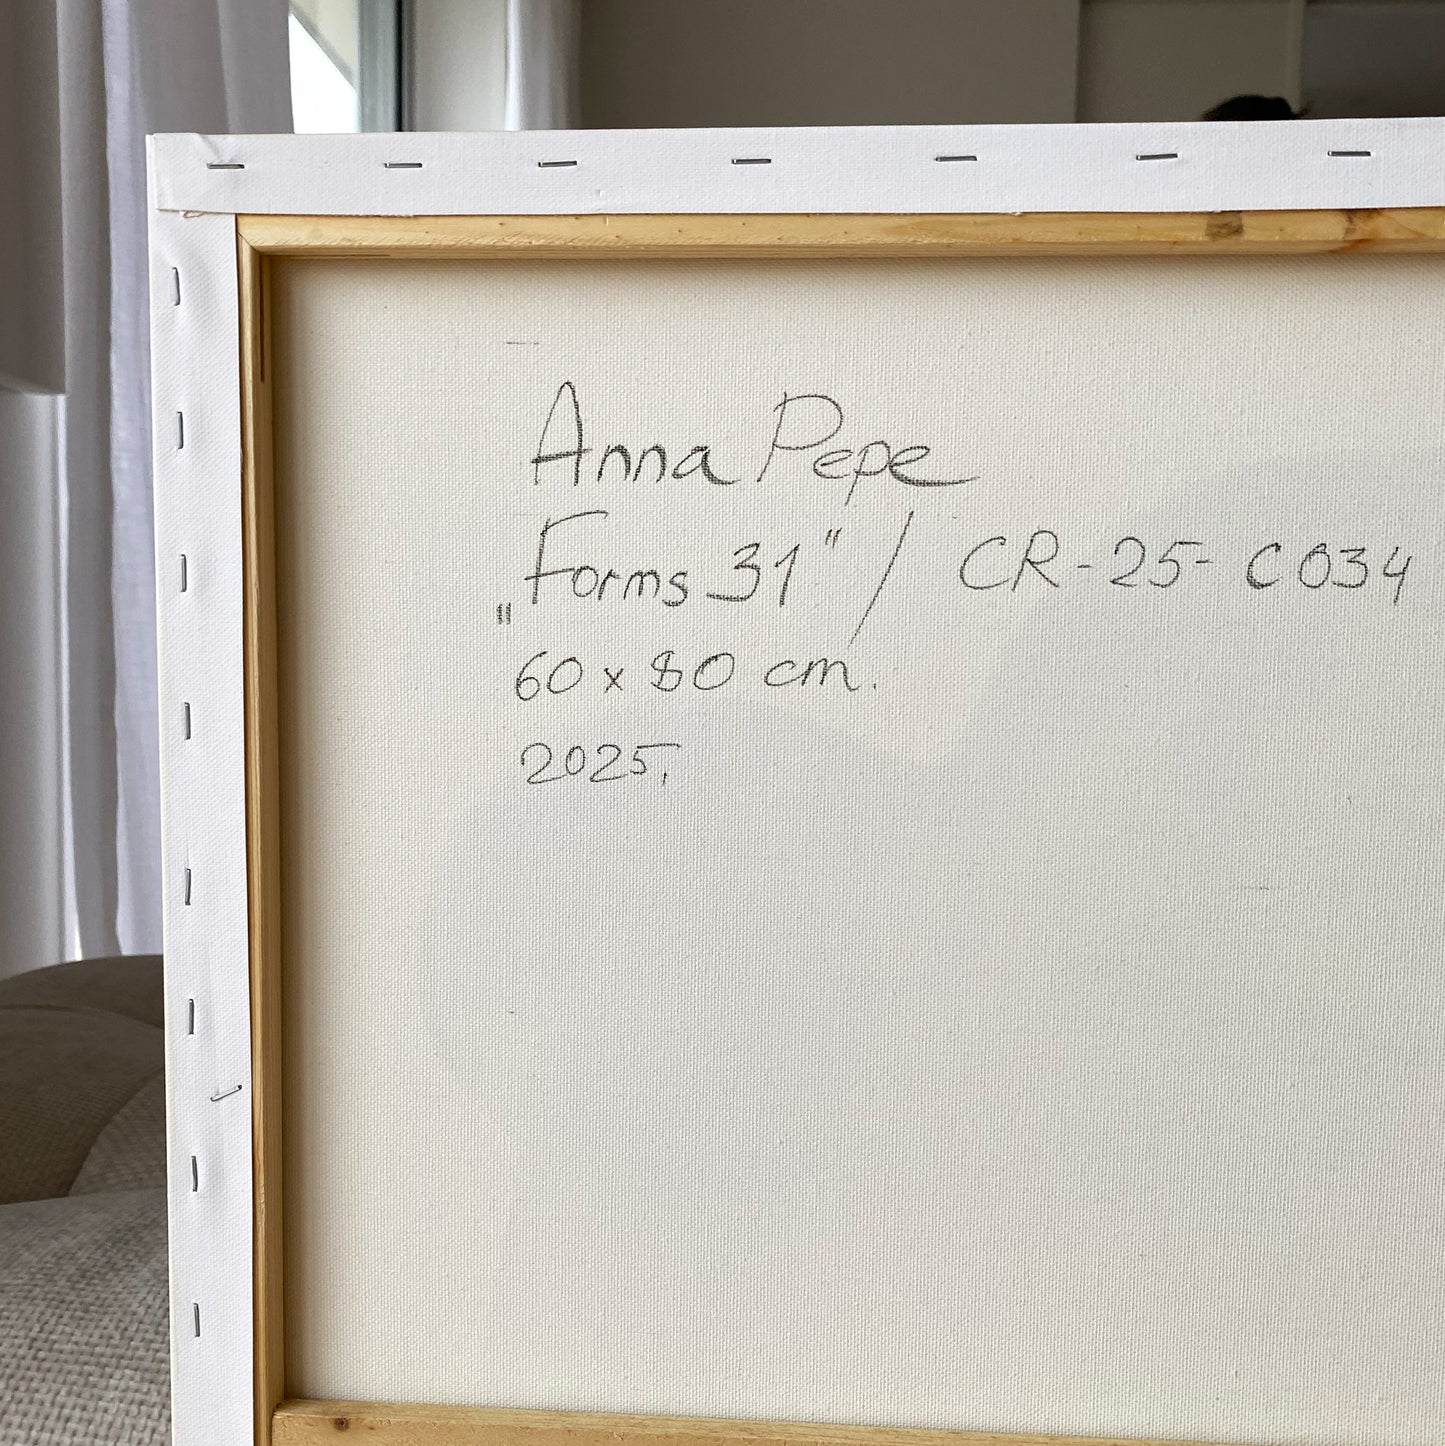 Anna Pepe
„Forms 31" / CR-25-C034
60 x 80 cm.
2025,